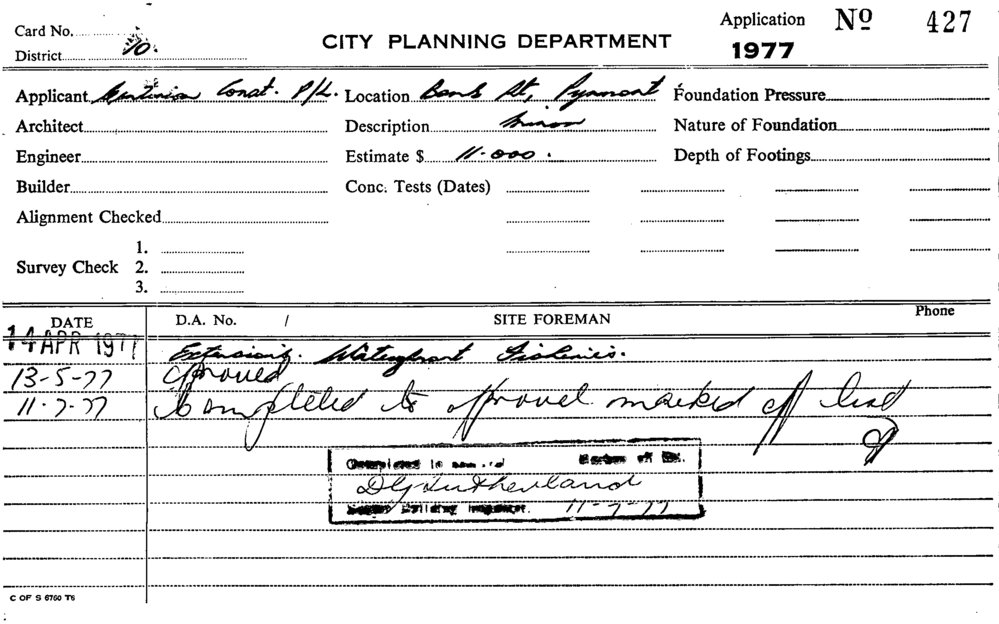 Card No.
District 10.
CITY PLANNING DEPARTMENT
Application Nº 427
1977
Applicant Const. P/L. Location Bank St, Pyrmont Foundation Pressure
Architect Description Minor Nature of Foundation
Engineer Estimate $ 11.000. Depth of Footings
Builder Conc. Tests (Dates)
Alignment Checked
1.
Survey Check 2.
3.
DATE D.A. No. / SITE FOREMAN Phone
14 APR 1977 Extensions. Waterfront Fisheries.
13-5-77 approved
11-7-77 Completed to approval marked off list
Completed to Marked off list.
D G Sutherland
Building Inspector. 11-7-77
C OF S 6760 T6